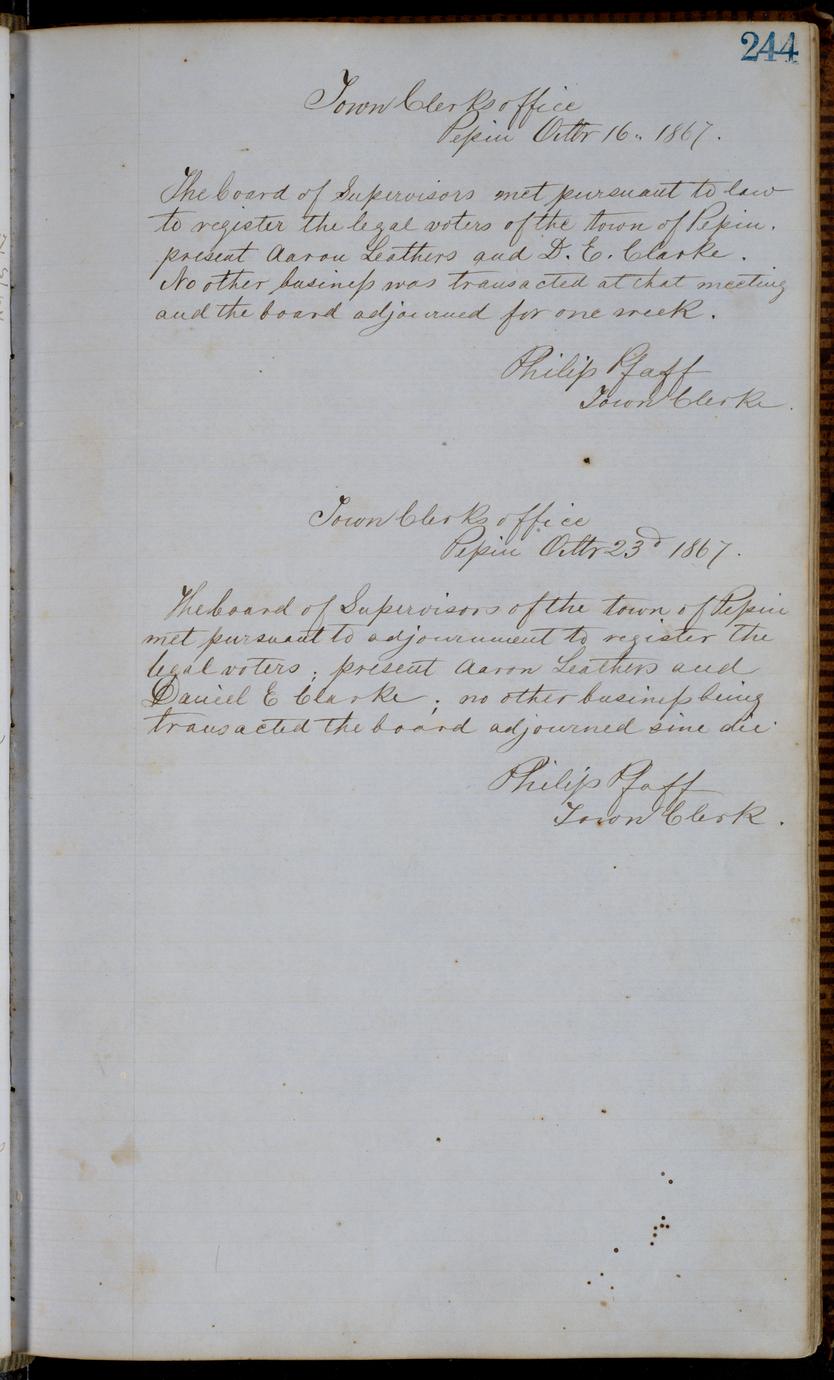 244
Town Clerks office
Pepin Octbr 16.. 1867.
The board of Supervisors met pursuant to law
to register the legal voters of the town of Pepin.
present Aaron Leathers and D. E. Clarke.
No other business was transacted at that meeting
and the board adjourned for one week.
Philip Pfaff
Town Clerke.
Town Clerks office
Pepin Octbr 23d 1867.
The board of Supervisors of the town of Pepin
met pursuant to adjournment to register the
legal voters; present Aaron Leathers and
Daniel E Clarke; no other business being
transacted the board adjourned sine die.
Philip Pfaff
Town Clerk.